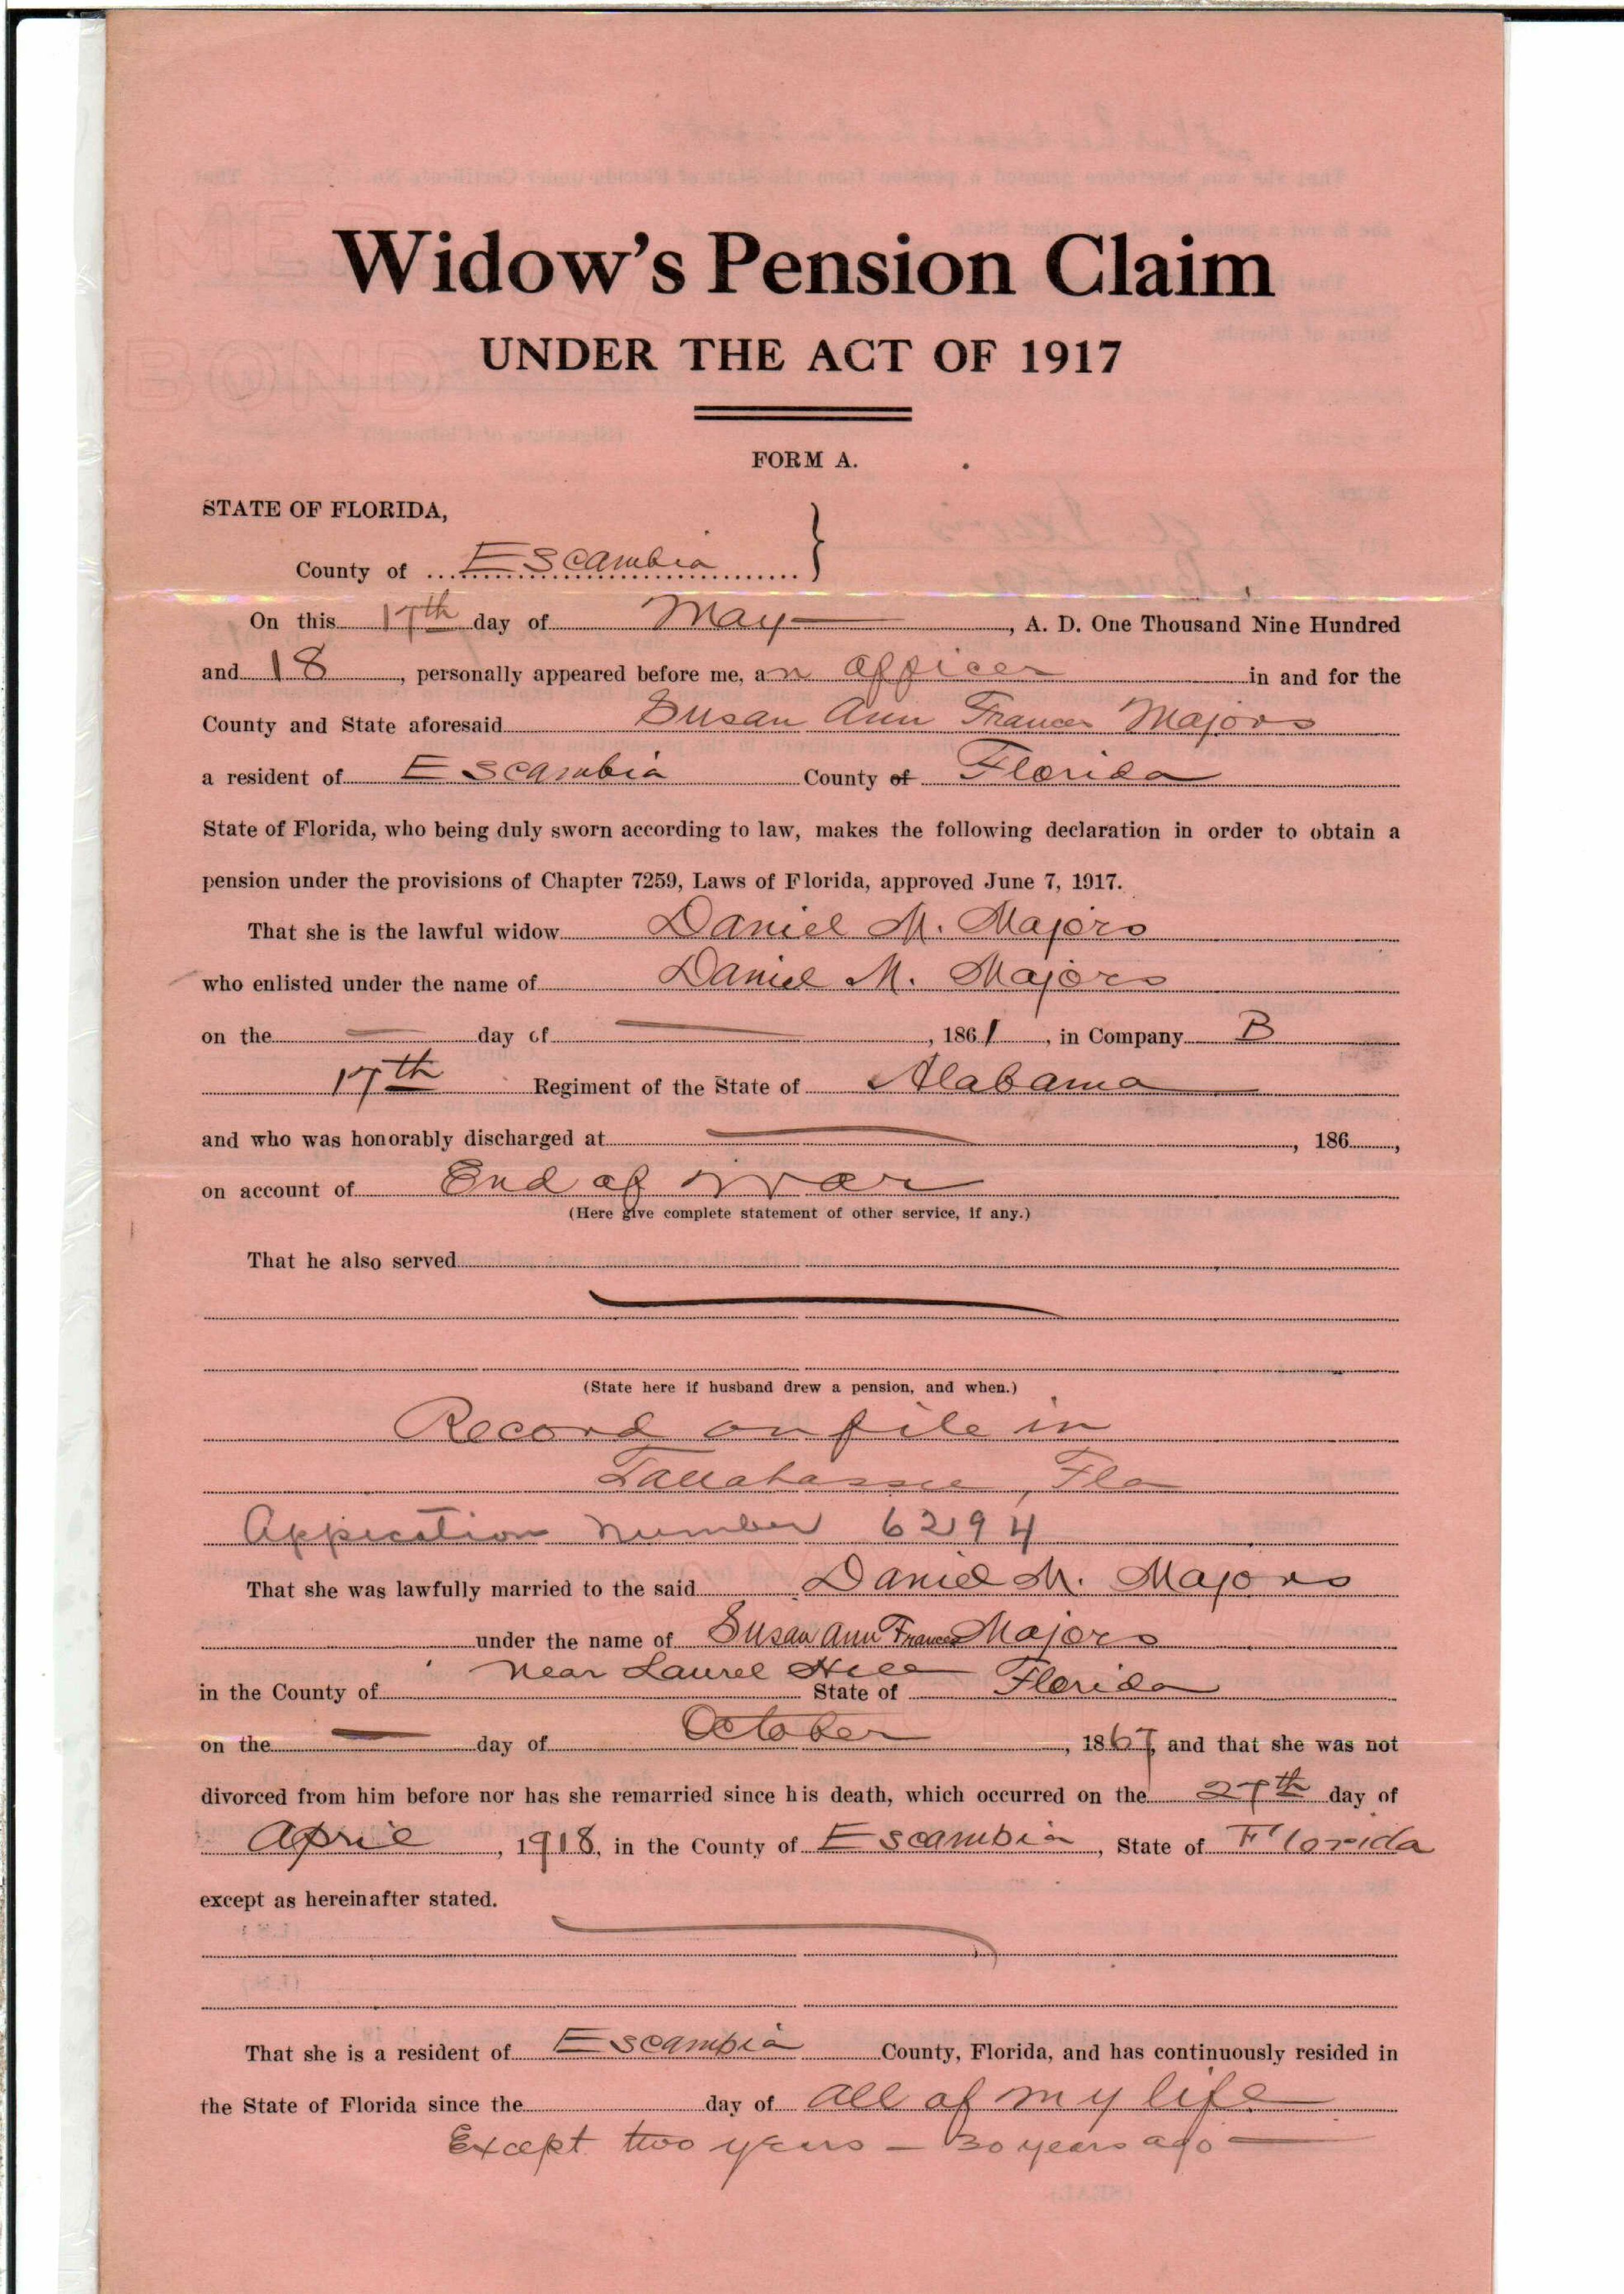 Widow's Pension Claim
UNDER THE ACT OF 1917
FORM A.
STATE OF FLORIDA,
County of Escambia }
On this 17th day of May, A. D. One Thousand Nine Hundred
and 18, personally appeared before me, an officer in and for the
County and State aforesaid Susan Ann Frances Majors
a resident of Escambia County of Florida
State of Florida, who being duly sworn according to law, makes the following declaration in order to obtain a
pension under the provisions of Chapter 7259, Laws of Florida, approved June 7, 1917.
That she is the lawful widow Daniel M. Majors
who enlisted under the name of Daniel M. Majors
on the — day of —, 1861, in Company B
17th Regiment of the State of Alabama
and who was honorably discharged at —, 186 ,
on account of End of War
(Here give complete statement of other service, if any.)
That he also served
(State here if husband drew a pension, and when.)
Record on file in
Tallahassee, Fla
Appication Number 6294
That she was lawfully married to the said Daniel M. Majors
under the name of Susan Ann Frances Majors
in the County of near Laurel Hill State of Florida
on the — day of October, 1867, and that she was not
divorced from him before nor has she remarried since his death, which occurred on the 27th day of
April, 1918, in the County of Escambia, State of Florida
except as hereinafter stated.
That she is a resident of Escambia County, Florida, and has continuously resided in
the State of Florida since the day of all of my life
Except two years — 30 years ago —